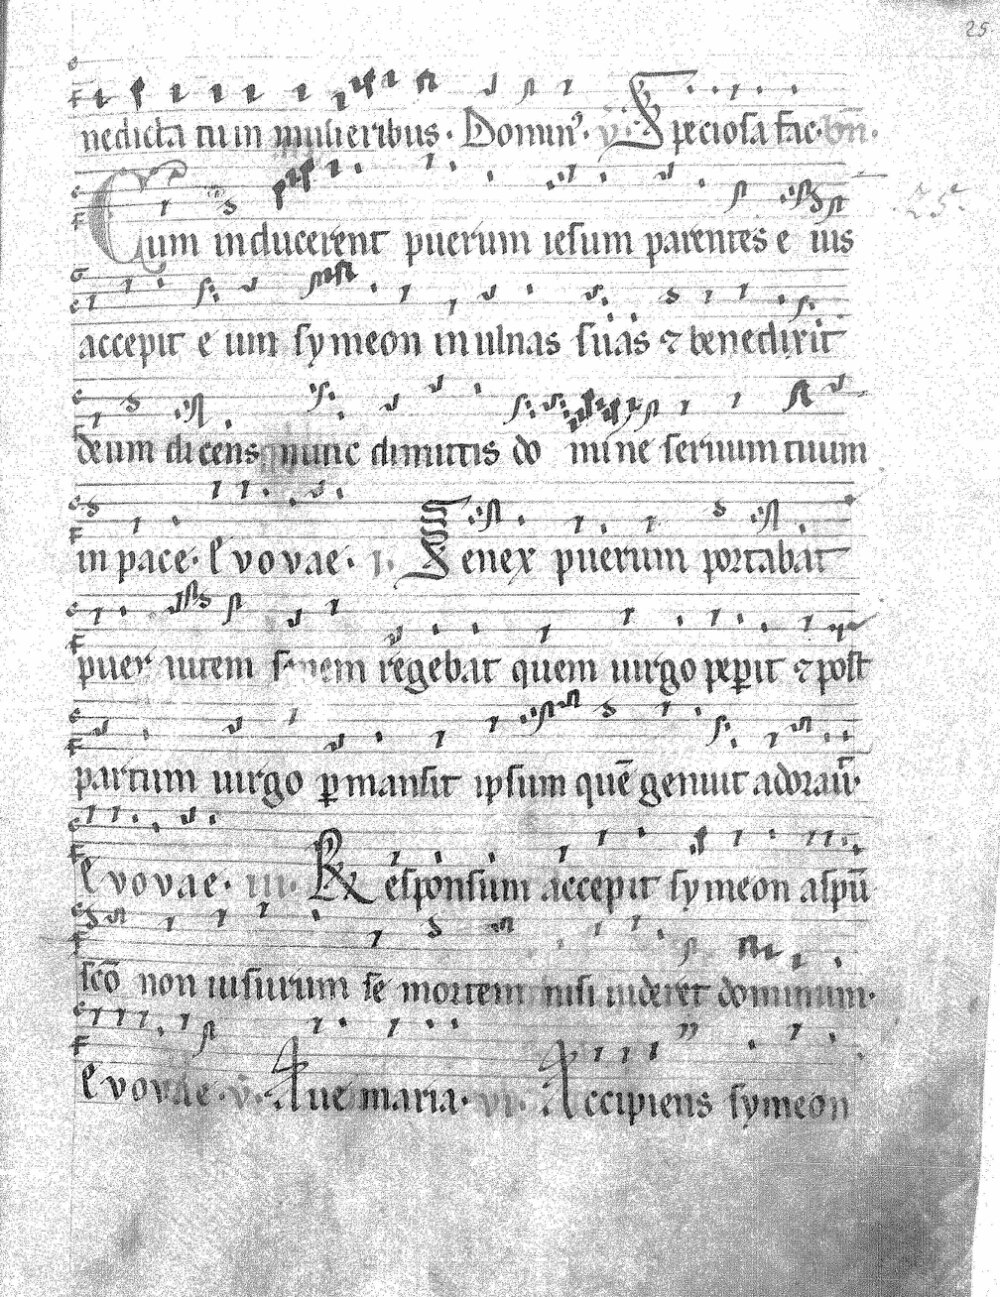 25.
nedicta tu in mulieribus · Domin᾽ · v̄ · Speciosa fac · bn̄ ·
Cum inducerent puerum iesum parentes e ius
25.
accepit e um symeon in ulnas suas ⁊ benedixit
deum dicens nunc dimittis do mine seruum tuum
in pace · Evovae · I · Senex puerum portabat
puer autem senem regebat quem uirgo peꝑit ⁊ post
partum uirgo ꝑmansit ipsum quē genuit adorauit ·
Evovae · III · Responsum accepit symeon aspū
scō non uisurum se mortem nisi uideret dominum ·
Evovae · v̄ · Aue maria · VI · Accipiens symeon